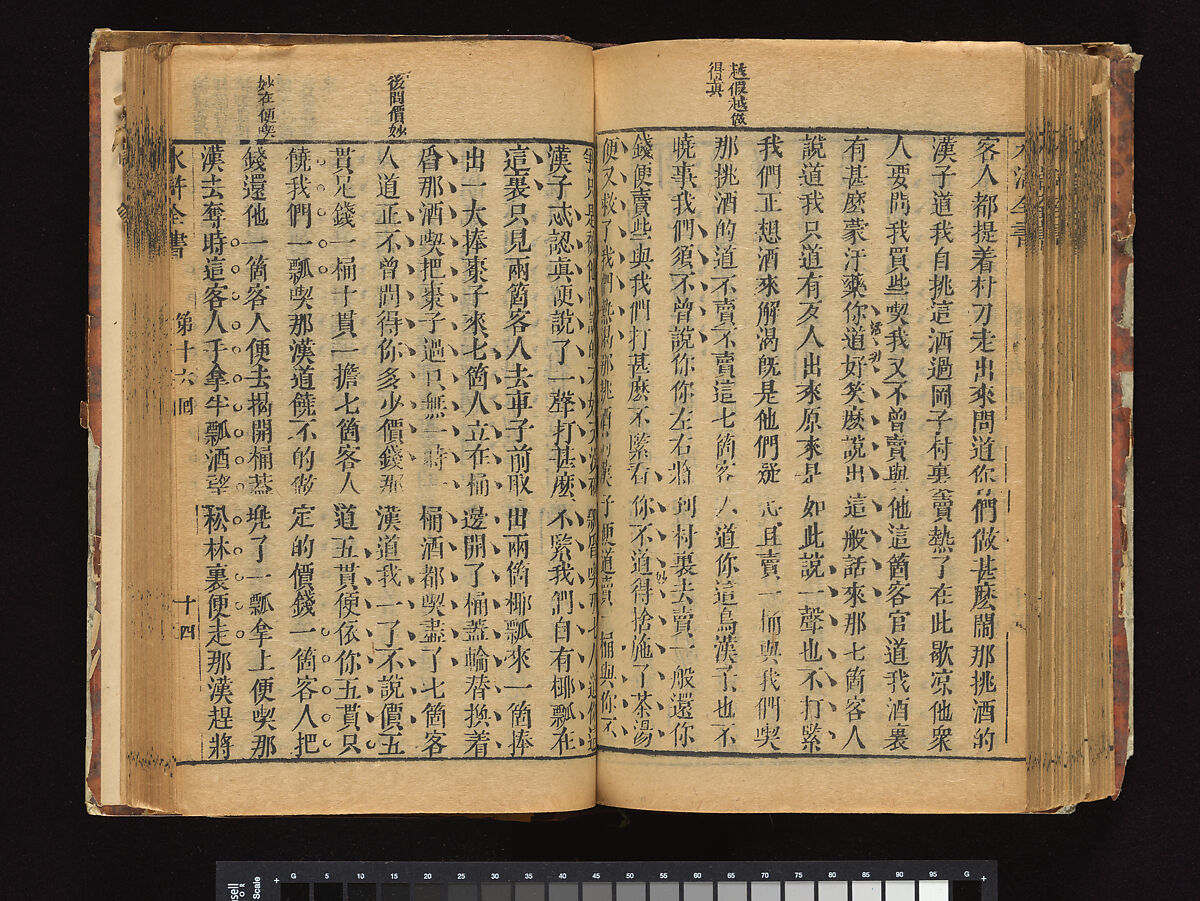 越假越做
得真
客人都提着朴刀走出來問道你們做甚麽鬧那挑酒的
漢子道我自挑這酒過岡子村裏賣熱了在此歇凉他衆
人要問我買些喫我又不曾賣與他這箇客官道我酒裏
有甚麽蒙汗藥你道好笑麽說出這般話來那七箇客人
說道我只道有歹人出來原來是如此說一聲也不打緊
我們正想酒來解渴旣是他們疑心且賣一桶與我們喫
那挑酒的道不賣不賣這七箇客人道你這鳥漢子也不
曉事我們須不曾說你你左右將到村裏去賣一般還你
錢便賣些與我們打甚麽不緊看你不道得捨施了茶湯
便又救了我們熱渴那挑酒的漢子便道賣一桶與你不
後問價妙
妙在便喫
漢子忒認眞便說了一聲打甚麽不緊我們自有椰瓢在
這裏只見兩箇客人去車子前取出兩箇椰瓢來一箇捧
出一大捧棗子來七箇人立在桶邊開了桶蓋輪替換着
舀那酒喫把棗子過口無一時一桶酒都喫盡了七箇客
人道正不曾問得你多少價錢那漢道我一了不說價五
貫足錢一桶十貫一擔七箇客人道五貫便依你五貫只
饒我們一瓢喫那漢道饒不的做定的價錢一箇客人把
錢還他一箇客人便去揭開桶蓋兜了一瓢拿上便喫那
漢去奪時這客人手拿半瓢酒望松林裏便走那漢趕將
水滸全書 第十六回 十四